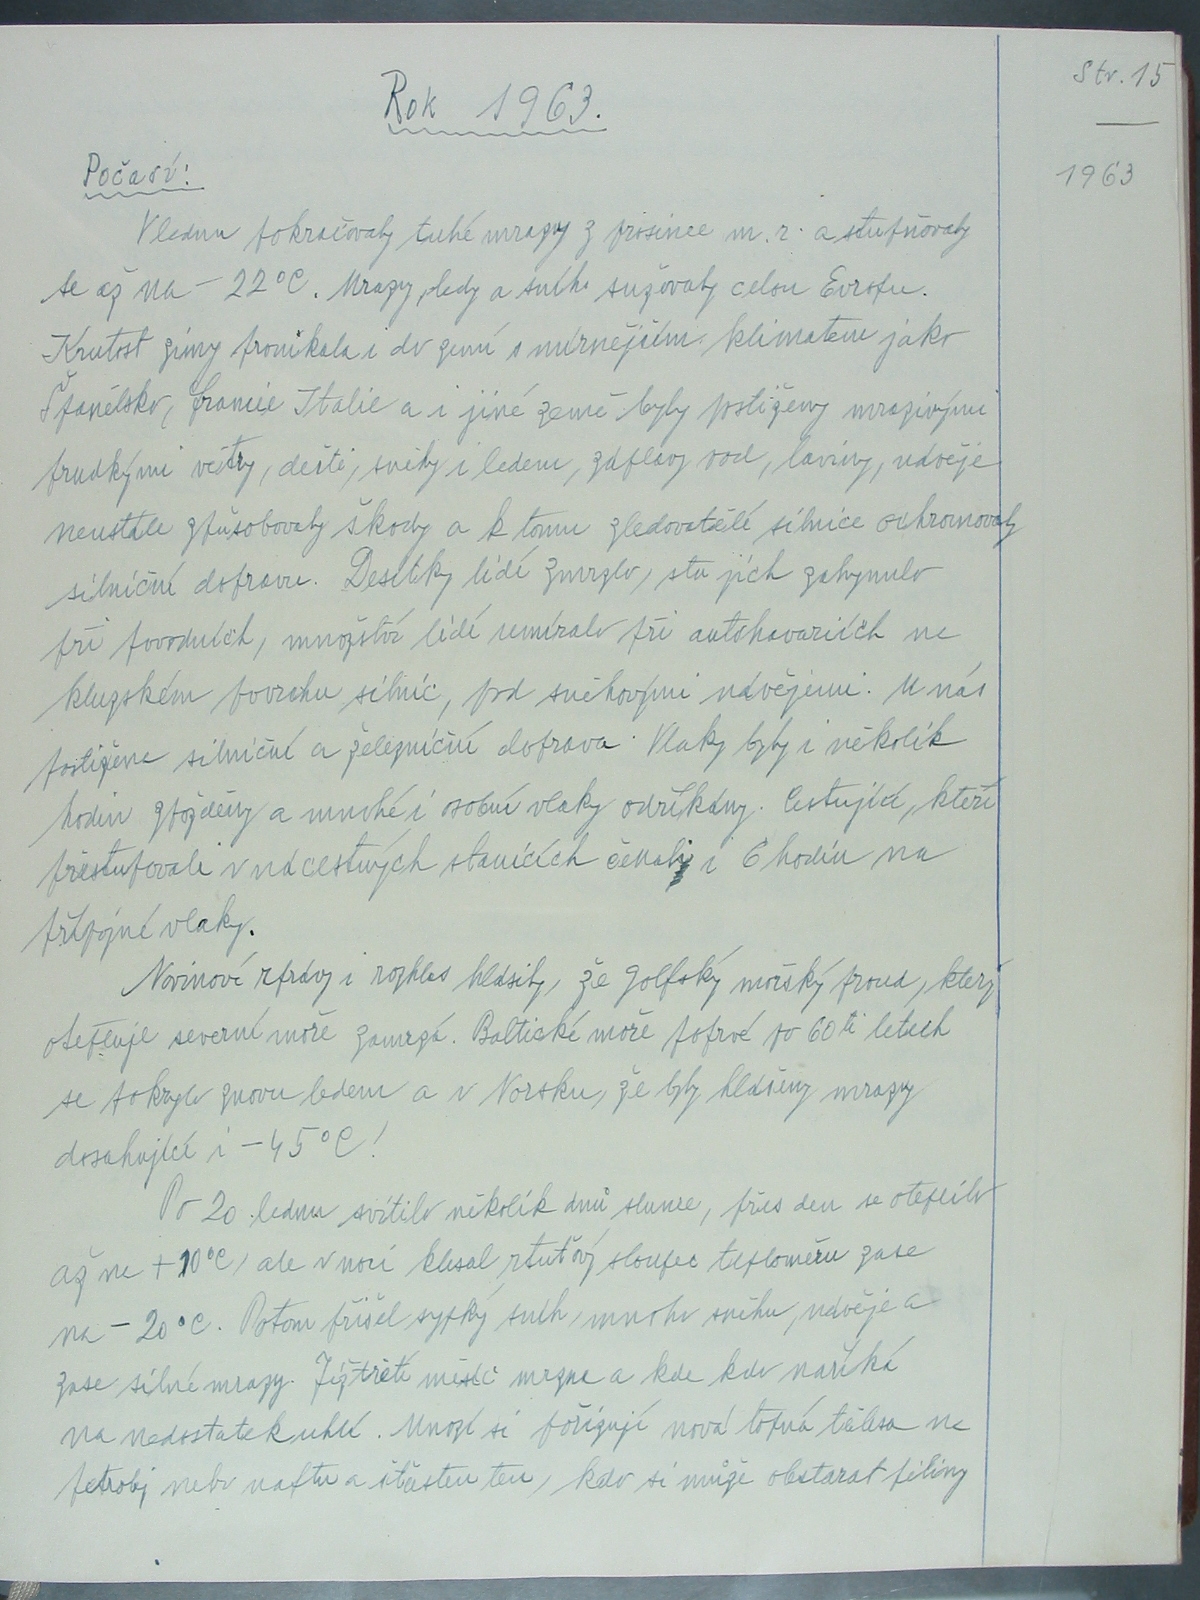 Str. 15
Rok 1963.
1963
Počasí:
V lednu pokračovaly tuhé mrazy z prosince m. r. a stupňovaly
se až na - 22°C. Mrazy, ledy a sníh sužovaly celou Evropu.
Krutost zimy pronikala i do zemí s mírnějším klimatem jako
Španělsko, Francie Italie a i jiné země byly postiženy mrazivými
prudkými větry, dešti, sněhy i ledem, záplavy vod, laviny, návěje
neustále způsobovaly škody a k tomu zledovatělé silnice ochromovaly
silniční dopravu. Desítky lidí zmrzlo, sta jich zahynulo
při povodních, množství lidí umíralo při autohavariích na
kluzském povrchu silnic, pod sněhovými návějemi. U nás
postižena silniční a železniční doprava. Vlaky byly i několik
hodin zpožděny a mnohé i osobní vlaky odříkány. Cestující, kteří
přestupovali v nácestných stanicích čekali i 6 hodin na
přípojné vlaky.
Novinové zprávy i rozhlas hlásily, že golfský mořský proud, který
otepluje severní moře zamrzá. Baltické moře poprvé po 60ti letech
se pokrylo znovu ledem a v Norsku, že byly hlášeny mrazy
dosahující i -45°C!
Po 20. lednu svítilo několik dnů slunce, přes den se oteplilo
až na +10°C, ale v noci klesal rtuťový sloupec teploměru zase
na - 20°C. Potom přišel sypký sníh, mnoho sněhu, návěje a
zase silné mrazy. Již třetí měsíc mrzne a kde kdo naříká
na nedostatek uhlí. Mnozí si pořizují nová topná tělesa na
petrolej nebo naftu a šťasten ten, kdo si může obstarat piliny